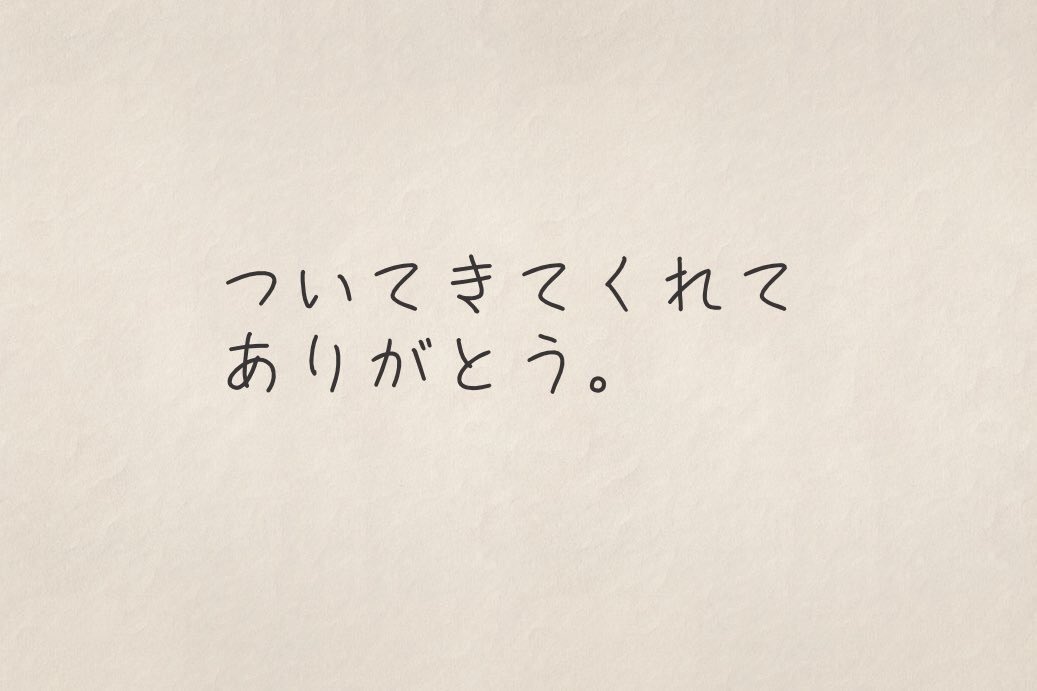 ついてきてくれて
ありがとう。